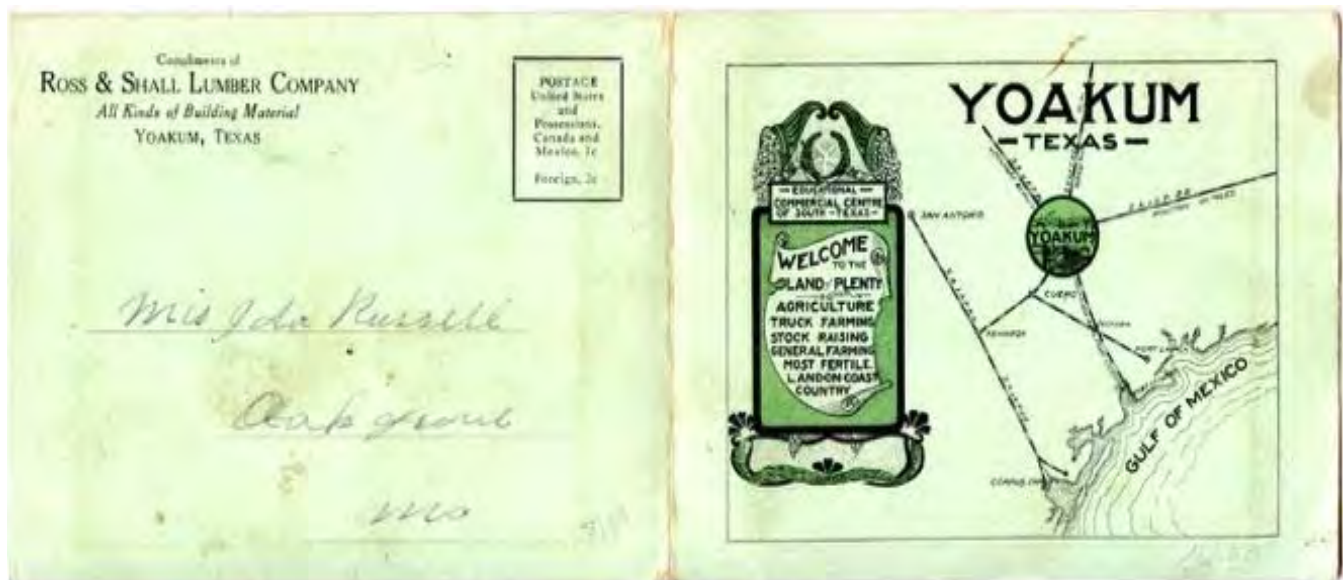 Compliments of
ROSS & SHALL LUMBER COMPANY
All Kinds of Building Material
YOAKUM, TEXAS
POSTAGE
United States
and
Possessions,
Canada and
Mexico, 1c
Foreign, 2c
Miss Ida Russell
Oak grove
Mo
YOAKUM
-TEXAS-
-EDUCATIONAL-
COMMERCIAL CENTRE
OF SOUTH-TEXAS-
WELCOME
TO THE
LAND OF PLENTY
AGRICULTURE
TRUCK FARMING
STOCK RAISING
GENERAL FARMING
MOST FERTILE
LAND ON COAST
COUNTRY
SAN ANTONIO
YOAKUM
CUERO
KENEDY
VICTORIA
PORT LAVACA
CORPUS CHRISTI
GULF OF MEXICO